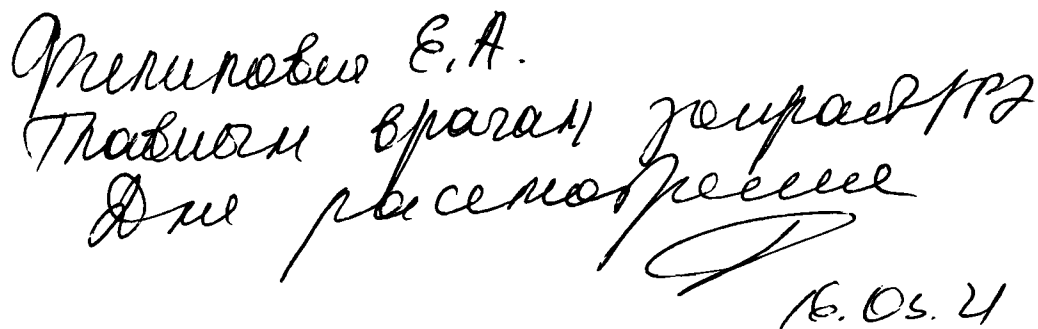 Филиповы Е.А.
Главным врачам
Для рассмотрения
16.03.21